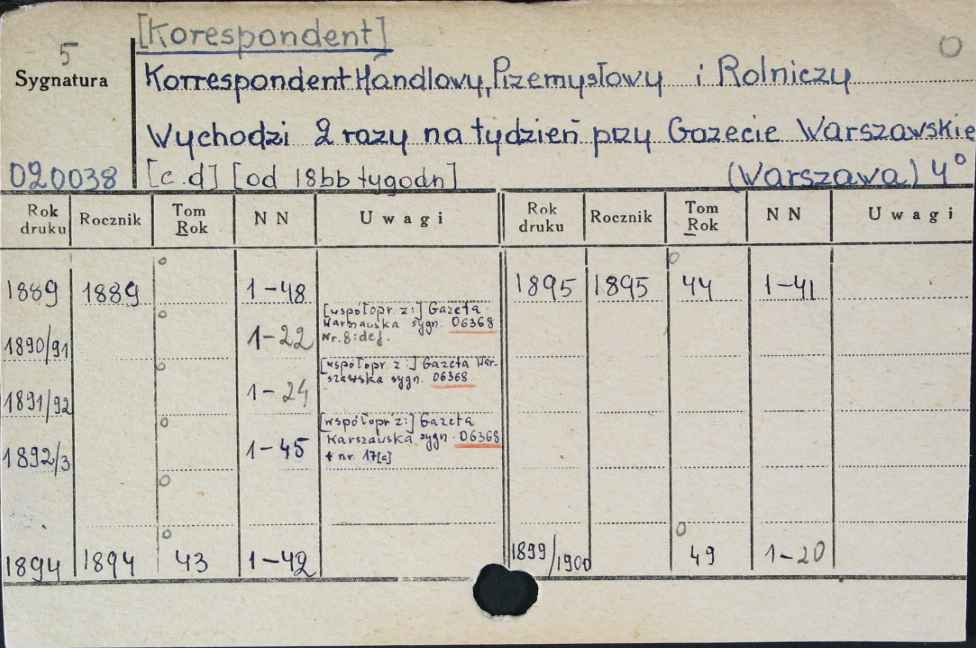 [Korespondent]
5
Sygnatura
Korrespondent Handlowy, Przemysłowy i Rolniczy
Wychodzi 2 razy na tydzień przy Gazecie Warszawskie
020038
[c.d] [od 18bb tygodn] (Warszawa) 4°
Rok druku Rocznik Tom Rok NN Uwagi Rok druku Rocznik Tom Rok NN Uwagi
1889 1889 1-48 1895 1895 44 1-41
1890/91 1-22 [współopr. z:] Gazeta
Warszawska sygn. 06368
Nr. 8: def.
1891/92 1-24 [współopr. z:] Gazeta War-
szawska sygn. 06368
1892/3 1-45 [współopr z:] Gazeta
Warszawska sygn. 06368
+ nr. 17[a]
1894 1894 43 1-42 1899/1900 49 1-20